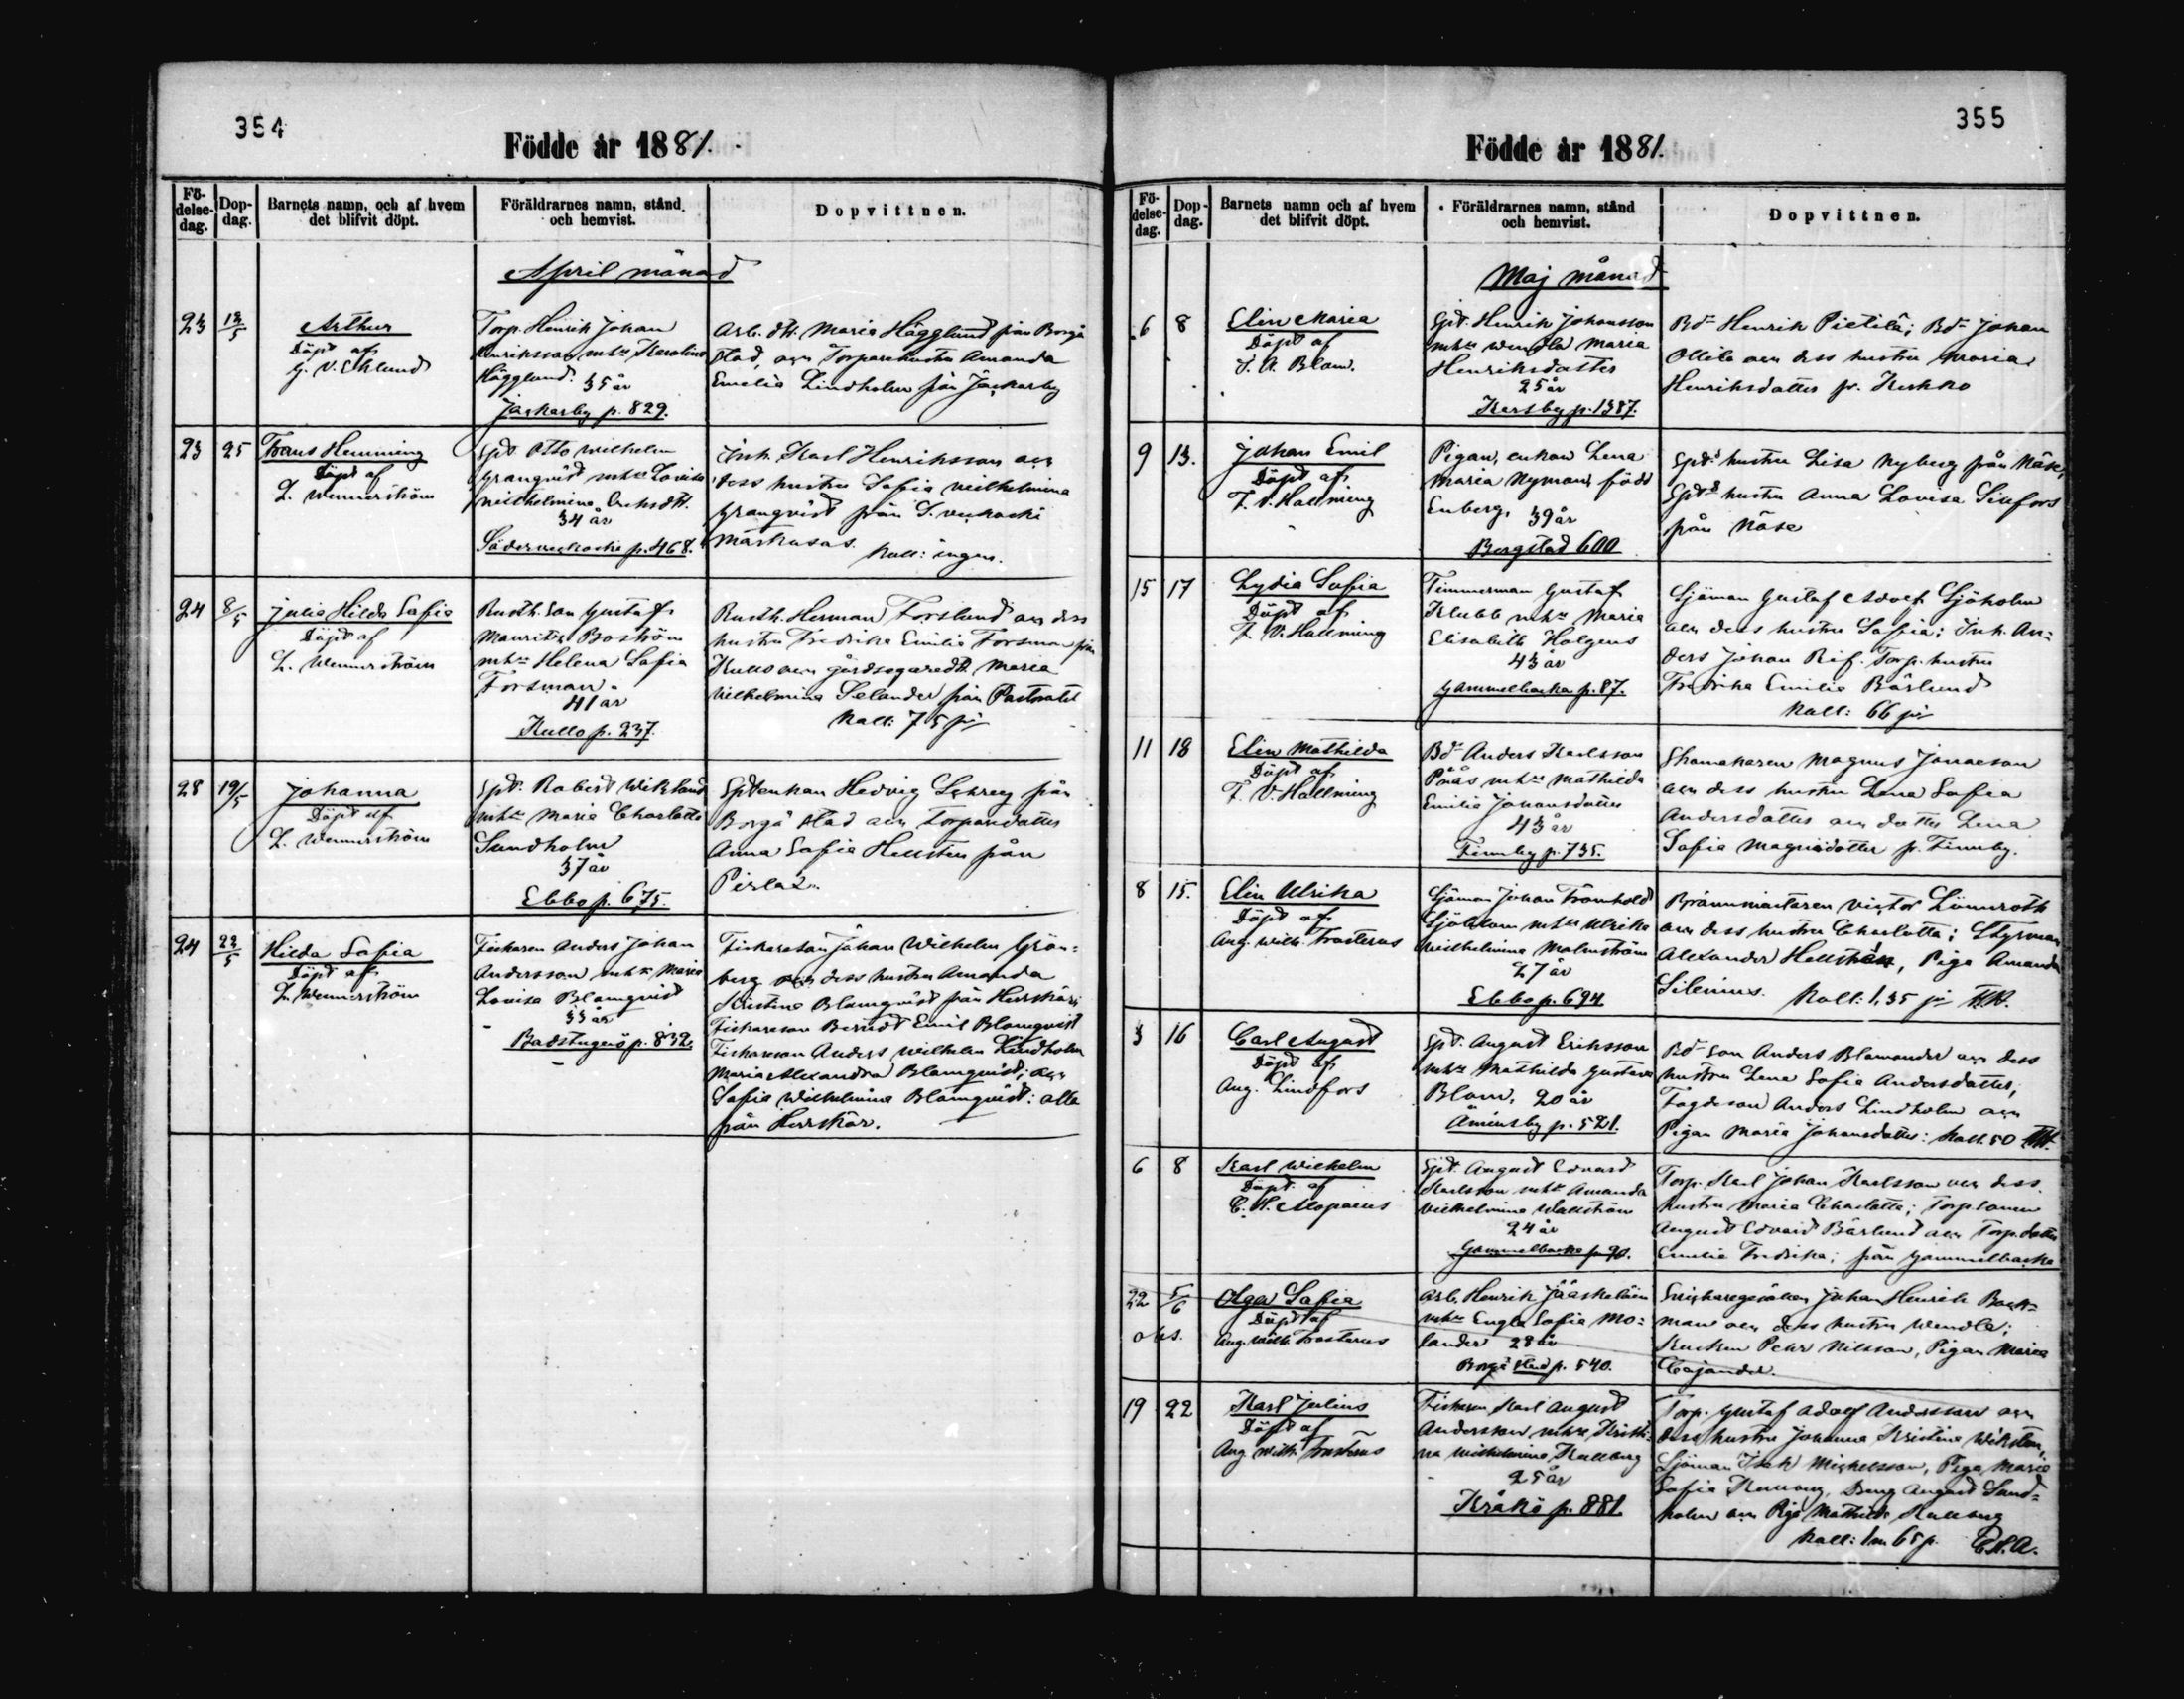 354
Födde år 1881.
Fö-
delse-
dag.
Dop-
dag.
Barnets namn, och af hvem
det blifvit döpt.
Föräldrarnes namn, stånd
och hemvist.
Dopvittnen.
April månad
23
13/5
Arthur
Döpt af
G. V. Eklund
Torp. Henrik Johan
Henriksson mhu Karolina
Hägglund. 35 år
Jackarby p. 829.
Arb. dtr. Maria Hägglund från Borgå
stad, och Torparehustru Amanda
Emelia Lindholm från Jackarby
23
25
Frans Hemming
Döpt af
L. Wennerström
Spt. Otto Wilhelm
Granqvist mhu Lovisa
Wilhelmina
34 år
p. 468.
Inh. Karl Henriksson och
dess hustru Sofia Wilhelmina
Granqvist från S.
Koll: ingen.
24
8/5
Julia Hilda Sofia
Döpt af
L. Wennerström
Rusth. Son Gustaf
Mauritz Boström
mhu Helena Sofia
Forsman.
41 år
Kullo p. 237.
Rusth. Herman Forslund och dess
hustru Fredrika Emilia Forsman från
Kullo och gårdsegaredtr. Maria
Wilhelmina Selander från
Koll: 75 pi
28
19/5
Johanna
Döpt af
L. Wennerström
Spt. Robert Wiklund
mhu Maria Charlotta
Sundholm
37 år
Ebbo p. 675.
Sptenkan Hedvig från
Borgå stad och Torparedotter
Anna Sofia Hellsten från
24
22/5
Hilda Sofia
Döpt af
L. Wennerström
Fiskaren Anders Johan
Andersson mhu Maria
Lovisa Blomqvist
33 år
Badstugeö p. 832
Fiskareson Johan Wilhelm Grön-
berg och dess hustru Amanda
Kristina Blomqvist från Herrskär;
Fiskareson Berndt Emil Blomqvist
Fiskareson Anders Wilhelm Lindholm
Maria Alexandra Blomqvist; och
Sofia Wilhelmina Blomqvist: alla
från Herrskär.
355
Födde år 1881.
Fö-
delse-
dag.
Dop-
dag.
Barnets namn och af hvem
det blifvit döpt.
Föräldrarnes namn, stånd
och hemvist.
Dopvittnen.
Maj månad
6
8
Elin Maria
Döpt af
Blom.
Spt. Henrik Johansson
mhu Wendla Maria
Henriksdotter
25 år
Kersby p. 1387.
Bd. Henrik Pietilä; Bd. Johan
Ollila och dess hustru Maria
Henriksdotter fr. Kerkko
9
13.
Johan Emil
Döpt af
F. V. Hallming
Pigan, enkan Lena
Maria Nyman, född
Enberg, 39 år
Borgstad 600
Spt:s hustru Lisa Nyberg från Näse,
Spt:s hustru Anna Lovisa Sixfors
från Näse
15
17
Lydia Sofia
Döpt af
F. V. Hallming
Timmerman Gustaf
Klubb mhu Maria
Elisabeth Holgens
43 år
Gammelbacka p. 87.
Sjöman Gustaf Adolf Sjöholm
och dess hustru Sofia; Inh. An-
ders Johan Rif. Torp. hustru
Fredrika Emilia Bärlund
Koll: 66 pi
11
18
Elin Mathilda
Döpt af
F. V. Hallming
Bd. Anders Karlsson
mhu Mathilda
Emilia Johansdotter
43 år
Finnby p. 735.
Skomakaren Magnus Jonasson
och dess hustru Lena Sofia
Andersdotter och dotter Lena
Sofia Magnidotter fr. Finnby.
8
15.
Elin Ulrika
Döpt af
Aug. Wilh. Frosterus
Sjöman Johan
Sjöblom mhu Ulrika
Wilhelmina Malmström
27 år
Ebbo p. 694
Brännmästaren Victor Lönnroth
och dess hustru Charlotta; Styrman
Alexander Hellström, Piga Amanda
Silenius. Koll: 1,35 pi
3
16
Carl August
Döpt af
Aug. Lindfors
Spt. August Eriksson
mhu Mathilda Gustava
Blom, 20 år
p. 521.
Bd. Son Anders Blomander och dess
hustru Lena Sofia Andersdotter,
Fogdeson Anders Lindholm och
Pigan Maria Johansdotter: Koll. 50
6
8
Karl Wilhelm
Döpt af
C. H. Alopaeus
Spt. August Edvard
Karlsson mhu Amanda
Wilhelmina Wallström
24 år
Gammelbacka p. 90.
Torp. Karl Johan Karlsson och dess
hustru Maria Charlotta; Torp. sonen
August Edvard Bärlund och Torp. dotter
Emilia Fredrika; från Gammelbacka
22
5/6
obs.
Olga Sofia
Döpt af
Aug. Wilh. Frosterus
Arb. Henrik Jääskeläin
mhu Engla Sofia Mo-
lander 28 år
Borgå Stad p. 540.
Johan Henrik Back-
man och dess hustru Wendla;
Kusken Pehr Nilsson, Pigan Maria
Cajander.
19
22
Karl Julius
Döpt af
Aug. Wilh. Frosterus
Fiskaren Karl August
Andersson mhu Kristi-
na Wilhelmina Kullberg
25 år
Kråkö p. 881.
Torp. Gustaf Adolf Andersson och
dess hustru Johanna Kristina Wikström,
Sjöman Isak Mickelsson, Piga Maria
Sofia, Dreng August Sund-
holm och Piga Mathilda Kullberg
Koll: 1 m 65 p.